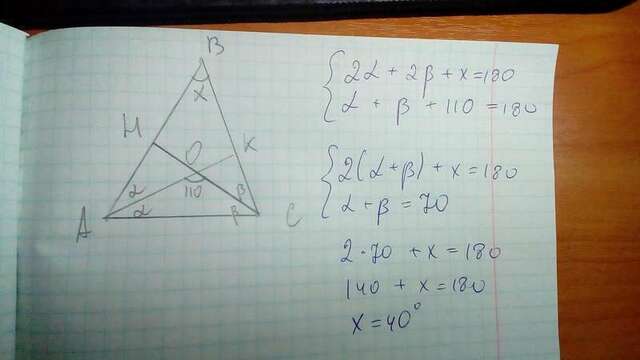 B
x
H
O
K
α
α
110
β
β
A
C
2α + 2β + x = 180
α + β + 110 = 180
2(α + β) + x = 180
α + β = 70
2 · 70 + x = 180
140 + x = 180
x = 40°